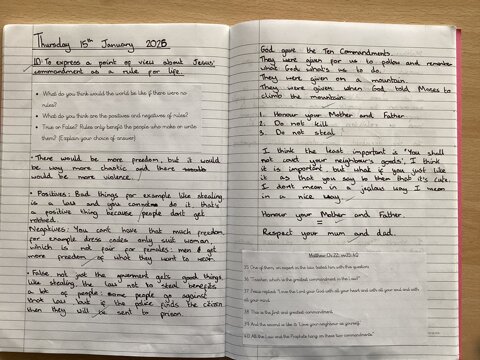 Thursday 15th January 2025
LO: To express a point of view about Jesus'
commandment as a rule for life.
• What do you think would the world be like if there were no
rules?
• What do you think are the positives and negatives of rules?
• True or False? Rules only benefit the people who make or write
them? (Explain your choice of answer)
• There would be more freedom, but it would
be way more chaotic and there would
would be more violence.
• Positives: Bad things for example like stealing
is a law and you do it, that's
a positive thing because people don't get
robbed.
Negatives: You cant have that much freedom
for example dress codes only suit woman,
which is not fair for females: men get
more freedom of what they want to wear.
• False not just the goverment gets good things
like stealing the law not to steal benefits
a lot of people: some people go against
that law but if the police finds the citizen
then they will be sent to prison
God gave the Ten Commandments.
They were given for us to follow and remember
what God what's us to do.
They were given on a mountain.
They were given when God told Moses to
climb the mountain.
1. Honour your Mother and Father
2. Do not kill
3. Do not steal
I think the least important is 'You shall
not covet your neighbour's goods'. I think
it is important, but what if you just like
it as that you say to them that it's cute.
I don't mean in a jealous way I mean
in a nice way.
Honour your Mother and Father.
=
Respect your mum and dad.
Matthew Ch 22: vv35-40
35 One of them, an expert in the law, tested him with this question:
36 "Teacher, which is the greatest commandment in the Law?"
37 Jesus replied: "Love the Lord your God with all your heart and with all your soul and with
all your mind.
38 This is the first and greatest commandment.
39 And the second is like it: 'Love your neighbour as yourself.'
40 All the Law and the Prophets hang on these two commandments."